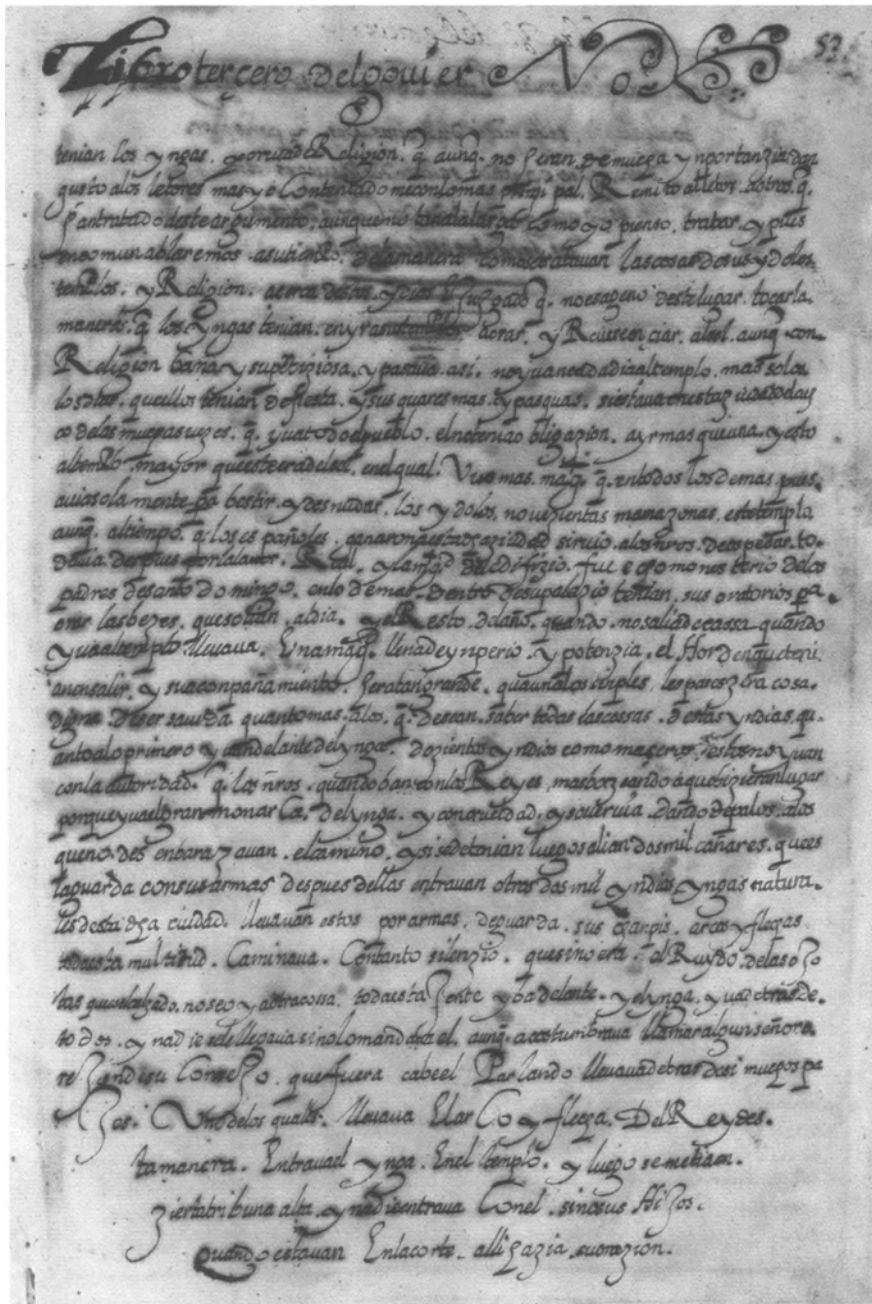 Libro tercero del govier No 53
tenian los yngas. y orival Religion. q̄ aunq̄. no seran. de mucha ynportanzia dan
gusto a los letores mas yo Contentado me con lo mas prinçipal. Remito al letor. a otros. q̄
han tratado deste argumento. aunque no tan a la larga como yo pienso. tratar. y pues
en comun ablaremos. a su tienpo. de la manera como se tratavan las cosas de sus ydolos
templos. y Religion. acerca desto. q̄. no es ageno deste lugar. tocar la
manera. q̄ los yngas tenian. en yr a su templo. a orar. y Reverenciar. al sol. aunq̄. con
Religion bana y supertiziosa. y pasava. asi. no yva cada dia al templo. mas solos
los dias. que ellos tenian de fiesta. y sus quaresmas. y pasquas. si estava en esta ziudad
o de las muchas vezes. q̄. yva todo el pueblo. el no tenia obligazion. a yr mas que una. y esto
al templo. mayor que este era del sol. en el qual. Uvo mas. mag. q̄. en todos los demas. pues.
avia sola mente. pa bestir. y desnudar. los ydolos. novezientas mamazonas. este templo
aunq̄. al tiempo. q̄. los españoles. ganaron a esta gran ziudad sirvio. a los nros. de ospedar. to
davia. despues por la labor. Real. y la mag. del edifizio. fue hecho monesterio de los
padres de santo domingo. en lo demas. dentro de su palazio tenian. sus oratorios pa.
orar las bezes. que solian. al dia. y el Resto. del año. quando. no salia de cassa quando
yva al templo. llevava. Una mag. llena de ynperio. y potenzia. el Horden que teni
an en salir. y su aconpañamiento. Hera tan grande. que aun a los sinples. les pareszera cosa.
digna. de ser savida quanto mas. a los. q̄. desean. saber todas las cossas. destas yndias. qu
anto a lo primero yvan delante del ynga. dozientos yndios como maçeros. estos no yvan
con la autoridad. q̄. los nros. quando ban. con los Reyes, mas bozeando a que hizieran lugar
porque yva el gran monarCa. del ynga. y con crueldad. y sovervia. Dando de palos. a los
que no. desenbarazavan. el camino. y si se detenian luego salian dos mil cañares. que es
la guarda con sus armas despues dellos entravan otros dos mil yndios yngas natura.
les desta dha ciudad. llevavan estos por armas. de guarda. sus chanpis. arcos y flechas
toda esta multitud. Caminava. Con tanto silenzio. que si no era. el Ruydo. de las oZo
tas que es calzado. no se oya otra cossa. toda esta Jente yba delante. y el ynga. yva detras de.
todos. y nadie se le llegava si no lo mandava el. aunq̄. acostumbrava llamar algun señor e.
re Zond su ConseZo. que fuera cabe el Parlando llevava detras de si muchos pa
Zes. Uno de los quales. llevava El arCo y flecha. Del Rey des.
ta manera. Entrava el ynga. En el templo. y luego se metia en.
zierta tribuna alta. y nadie entrava Con el. sino sus HiZos.
quando estavan En la corte. alli hazia. su orazion.